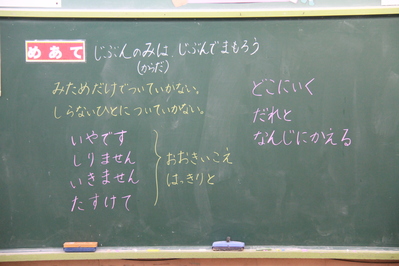 めあて じぶんのみは じぶんでまもろう
(からだ)
みためだけでついていかない。
しらないひとについていかない。
いやです
しりません
いきません
たすけて
おおきいこえ
はっきりと
どこにいく
だれと
なんじにかえる